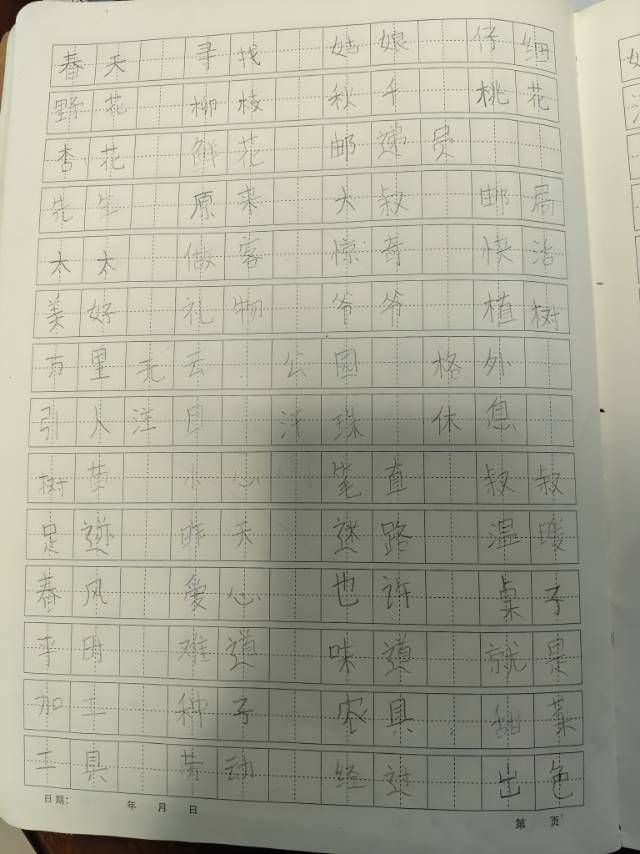 春天 寻找 姑娘 仔细
野花 柳枝 秋千 桃花
杏花 鲜花 邮递员
先生 原来 大叔 邮局
太太 做客 惊奇 快活
美好 礼物 爷爷 植树
万里无云 公园 格外
引人注目 汗珠 休息
树苗 小心 笔直 叔叔
足迹 昨天 迷路 温暖
春风 爱心 也许 桌子
平时 难道 味道 就是
加工 种子 农具 甜菜
工具 劳动 经过 出色
日期: 年 月 日 第 页